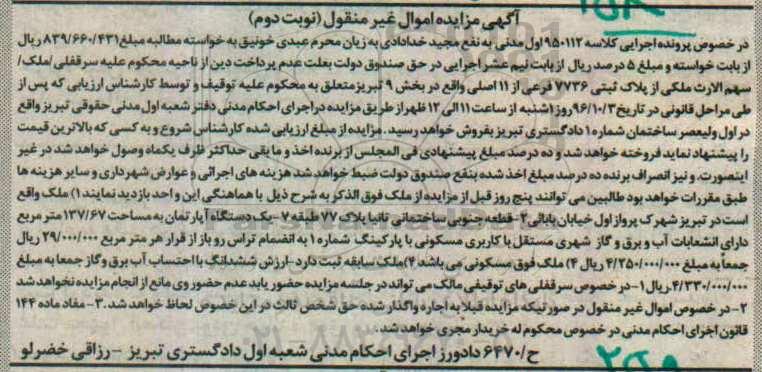 آگهی مزایده اموال غیر منقول (نوبت دوم)
در خصوص پرونده اجرایی کلاسه ۹۵۰۱۱۲ اول مدنی به نفع مجید خدادادی به زیان محرم عبدی خونیق به خواسته مطالبه مبلغ ۸۳۹/۶۶۰/۴۳۱ ریال
از بابت خواسته و مبلغ ۵ درصد ریال از بابت نیم عشر اجرایی در حق صندوق دولت بعلت عدم پرداخت دین از ناحیه محکوم علیه سرقفلی/ملک/
سهم الارث ملکی از پلاک ثبتی ۷۷۳۶ فرعی از ۱۱ اصلی واقع در بخش ۹ تبریز متعلق به محکوم علیه توقیف و توسط کارشناس ارزیابی که پس از
طی مراحل قانونی در تاریخ ۹۶/۱۰/۳ روز ۱شنبه از ساعت ۱۱ الی ۱۲ ظهر از طریق مزایده در اجرای احکام مدنی دفتر شعبه اول مدنی حقوقی تبریز واقع
در اول ولیعصر ساختمان شماره ۱ دادگستری تبریز بفروش خواهد رسید. مزایده از مبلغ ارزیابی شده کارشناس شروع و به کسی که بالاترین قیمت
را پیشنهاد نماید فروخته خواهد شد و ده درصد مبلغ پیشنهادی فی المجلس از برنده اخذ و ما بقی حداکثر ظرف یکماه وصول خواهد شد در غیر
اینصورت. و نیز انصراف برنده ده درصد مبلغ اخذ شده بنفع صندوق دولت ضبط خواهد شد هزینه های اجرائی و عوارض شهرداری و سایر هزینه ها
طبق مقررات خواهد بود طالبین می توانند پنج روز قبل از مزایده از ملک فوق الذکر به شرح ذیل با هماهنگی این واحد بازدید نمایند ۱) ملک واقع
است در تبریز شهرک پرواز اول خیابان بابائی ۲- قطعه جنوبی ساختمانی تانیا پلاک ۷۷ طبقه ۷ - یک دستگاه آپارتمان به مساحت ۱۳۷/۶۷ متر مربع
دارای انشعابات آب و برق و گاز شهری مستقل با کاربری مسکونی با پارکینگ شماره ۱ به انضمام تراس رو باز از قرار هر متر مربع ۲۹/۰۰۰/۰۰۰ ریال
جمعاً به مبلغ ۴/۲۵۰/۰۰۰/۰۰۰ ریال ۴) ملک فوق مسکونی می باشد ۴) ملک سابقه ثبت دارد - ارزش ششدانگ با احتساب آب برق و گاز جمعا به مبلغ
۴/۳۳۰/۰۰۰/۰۰۰ ریال ۱- در خصوص سرقفلی های توقیفی مالک می تواند در جلسه مزایده حضور یابد عدم حضور وی مانع از انجام مزایده نخواهد شد
۲- در خصوص اموال غیر منقول در صورتیکه مزایده قبلا به اجاره واگذار شده حق شخص ثالث در این خصوص لحاظ خواهد شد. ۳- مفاد ماده ۱۴۴
قانون اجرای احکام مدنی در خصوص محکوم له خریدار مجری خواهد شد.
ح/۶۴۷۰ دادورز اجرای احکام مدنی شعبه اول دادگستری تبریز - رزاقی خضرلو